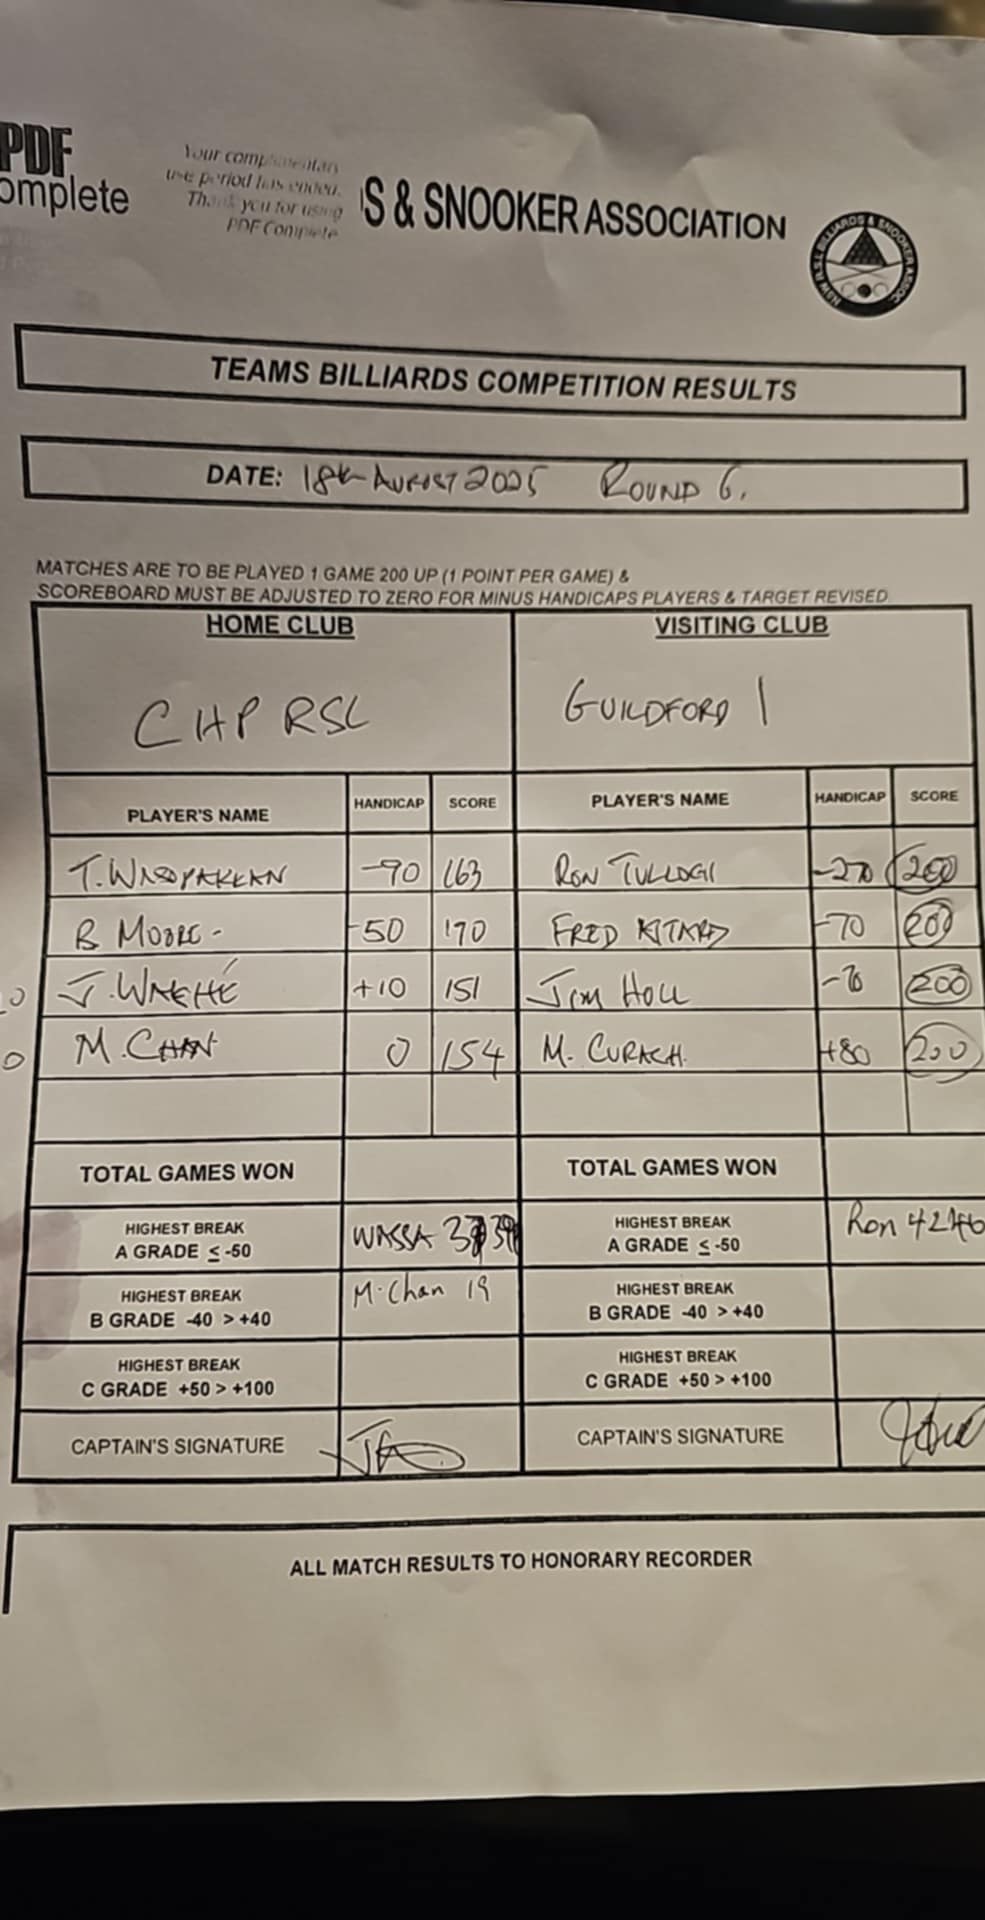 PDF
omplete
Your complimentary
use period has ended.
Thank you for using
PDF Complete
S & SNOOKER ASSOCIATION
NSW R.S.L BILLIARDS & SNOOKER ASSOC.
TEAMS BILLIARDS COMPETITION RESULTS
DATE: 18th AUGUST 2025 ROUND 6.
MATCHES ARE TO BE PLAYED 1 GAME 200 UP (1 POINT PER GAME) &
SCOREBOARD MUST BE ADJUSTED TO ZERO FOR MINUS HANDICAPS PLAYERS & TARGET REVISED
HOME CLUB VISITING CLUB
CHP RSL GUILDFORD 1
PLAYER'S NAME HANDICAP SCORE PLAYER'S NAME HANDICAP SCORE
T. -90 163 RON -270 200
B MOORE -50 170 FRED -70 200
J. +10 151 JIM HOLL 200
M. CHAN 0 154 M. CURACH. +80 200
TOTAL GAMES WON TOTAL GAMES WON
HIGHEST BREAK
A GRADE ≤ -50 WASSA HIGHEST BREAK
A GRADE ≤ -50 Ron 42
HIGHEST BREAK
B GRADE -40 > +40 M. Chan 19 HIGHEST BREAK
B GRADE -40 > +40
HIGHEST BREAK
C GRADE +50 > +100 HIGHEST BREAK
C GRADE +50 > +100
CAPTAIN'S SIGNATURE CAPTAIN'S SIGNATURE
ALL MATCH RESULTS TO HONORARY RECORDER